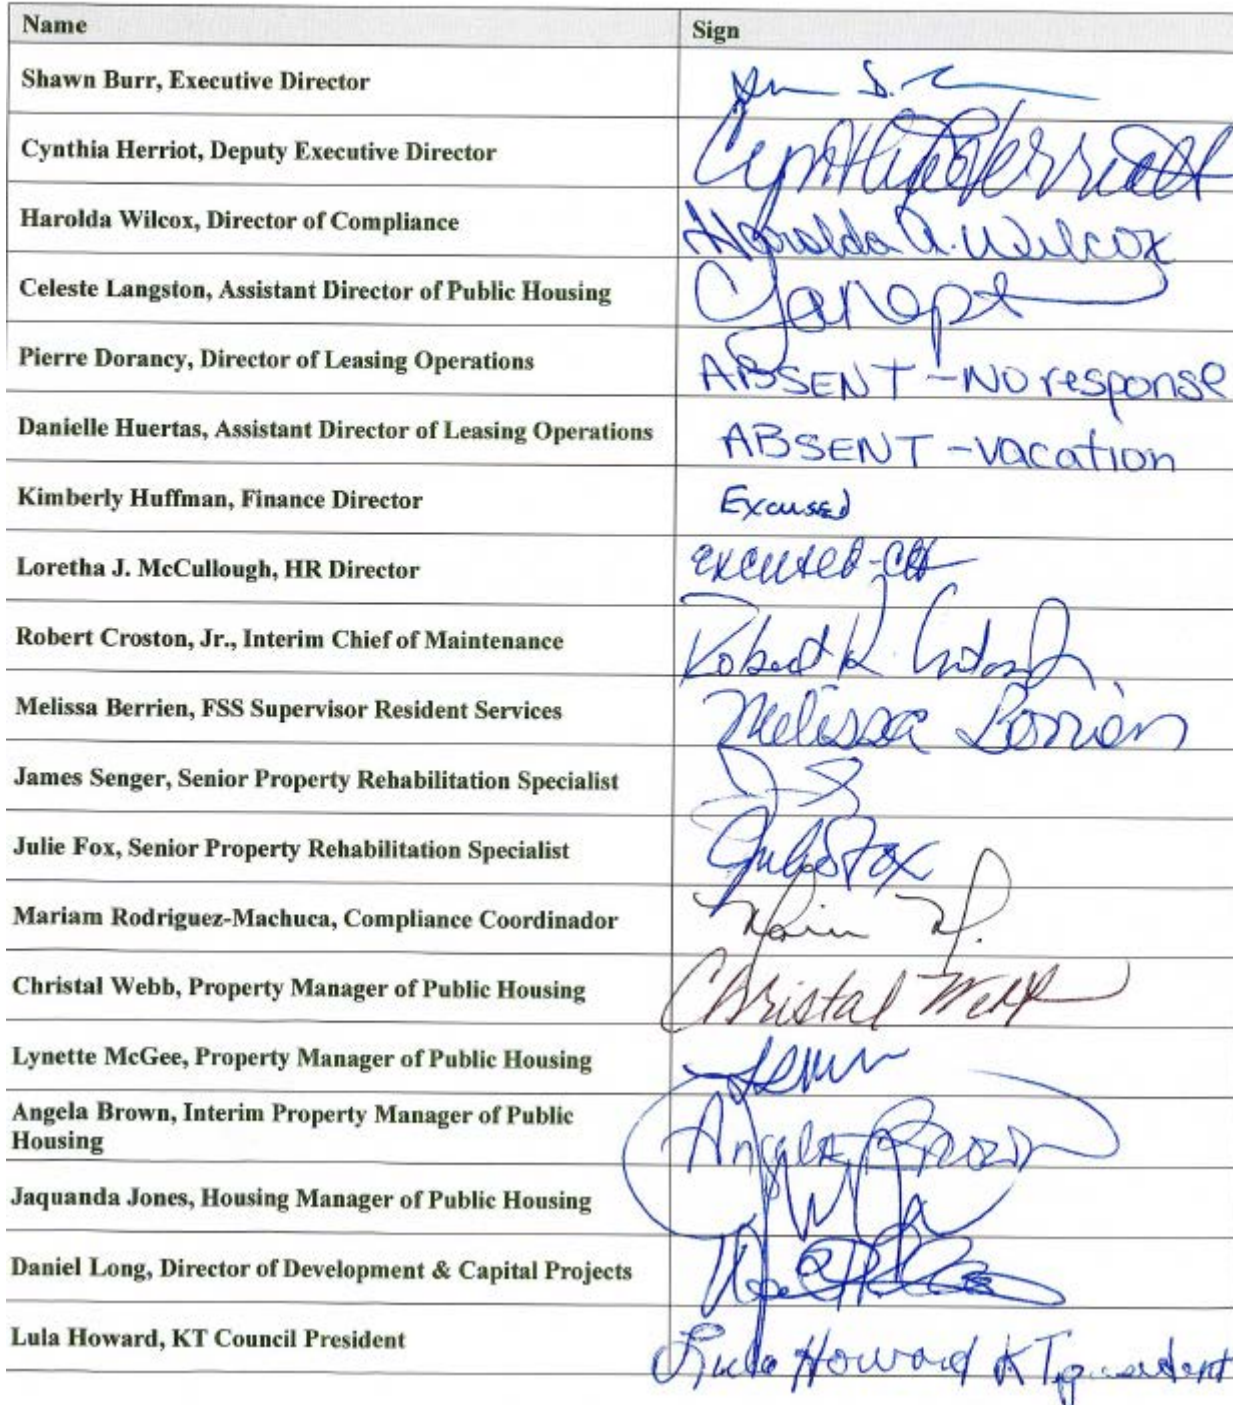 Name Sign
Shawn Burr, Executive Director
Cynthia Herriot, Deputy Executive Director Cynthia Herriott
Harolda Wilcox, Director of Compliance Harolda A. Wilcox
Celeste Langston, Assistant Director of Public Housing
Pierre Dorancy, Director of Leasing Operations ABSENT - NO response
Danielle Huertas, Assistant Director of Leasing Operations ABSENT - vacation
Kimberly Huffman, Finance Director Excused
Loretha J. McCullough, HR Director excused-
Robert Croston, Jr., Interim Chief of Maintenance Robert K.
Melissa Berrien, FSS Supervisor Resident Services Melissa Berrien
James Senger, Senior Property Rehabilitation Specialist
Julie Fox, Senior Property Rehabilitation Specialist Julie Fox
Mariam Rodriguez-Machuca, Compliance Coordinador
Christal Webb, Property Manager of Public Housing Christal Webb
Lynette McGee, Property Manager of Public Housing
Angela Brown, Interim Property Manager of Public
Housing Angela Brown
Jaquanda Jones, Housing Manager of Public Housing
Daniel Long, Director of Development & Capital Projects
Lula Howard, KT Council President Lula Howard KT president